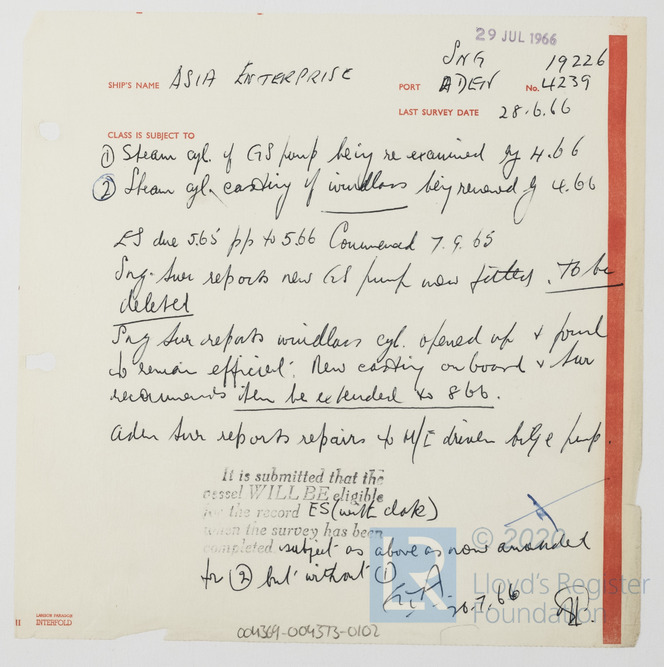 29 JUL 1966
SNG 19226
SHIP'S NAME ASIA ENTERPRISE PORT ADEN No. 4239
LAST SURVEY DATE 28.6.66
CLASS IS SUBJECT TO
① Steam cyl. of GS pump being re examined by 4.66
② Steam cyl. casting of windlass being renewed by 4.66
ES due 5.65 pp to 5.66 Commenced 7.9.65
Sng. Sur reports new GS pump now fitted. To be
deleted
Sng Sur reports windlass cyl. opened up & found
to remain efficient. New casting on board & Sur
recommends item be extended to 8.66.
Aden Sur reports repairs to M/E driven bilge pump.
It is submitted that the
vessel WILL BE eligible
for the record ES (with date)
when the survey has been
completed. subject as above as now amended
for ② but without ①
26.7.66
© 2020
Lloyd's Register
Foundation
LAMSON PARAGON
DITERFOLD
004369-004373-0102